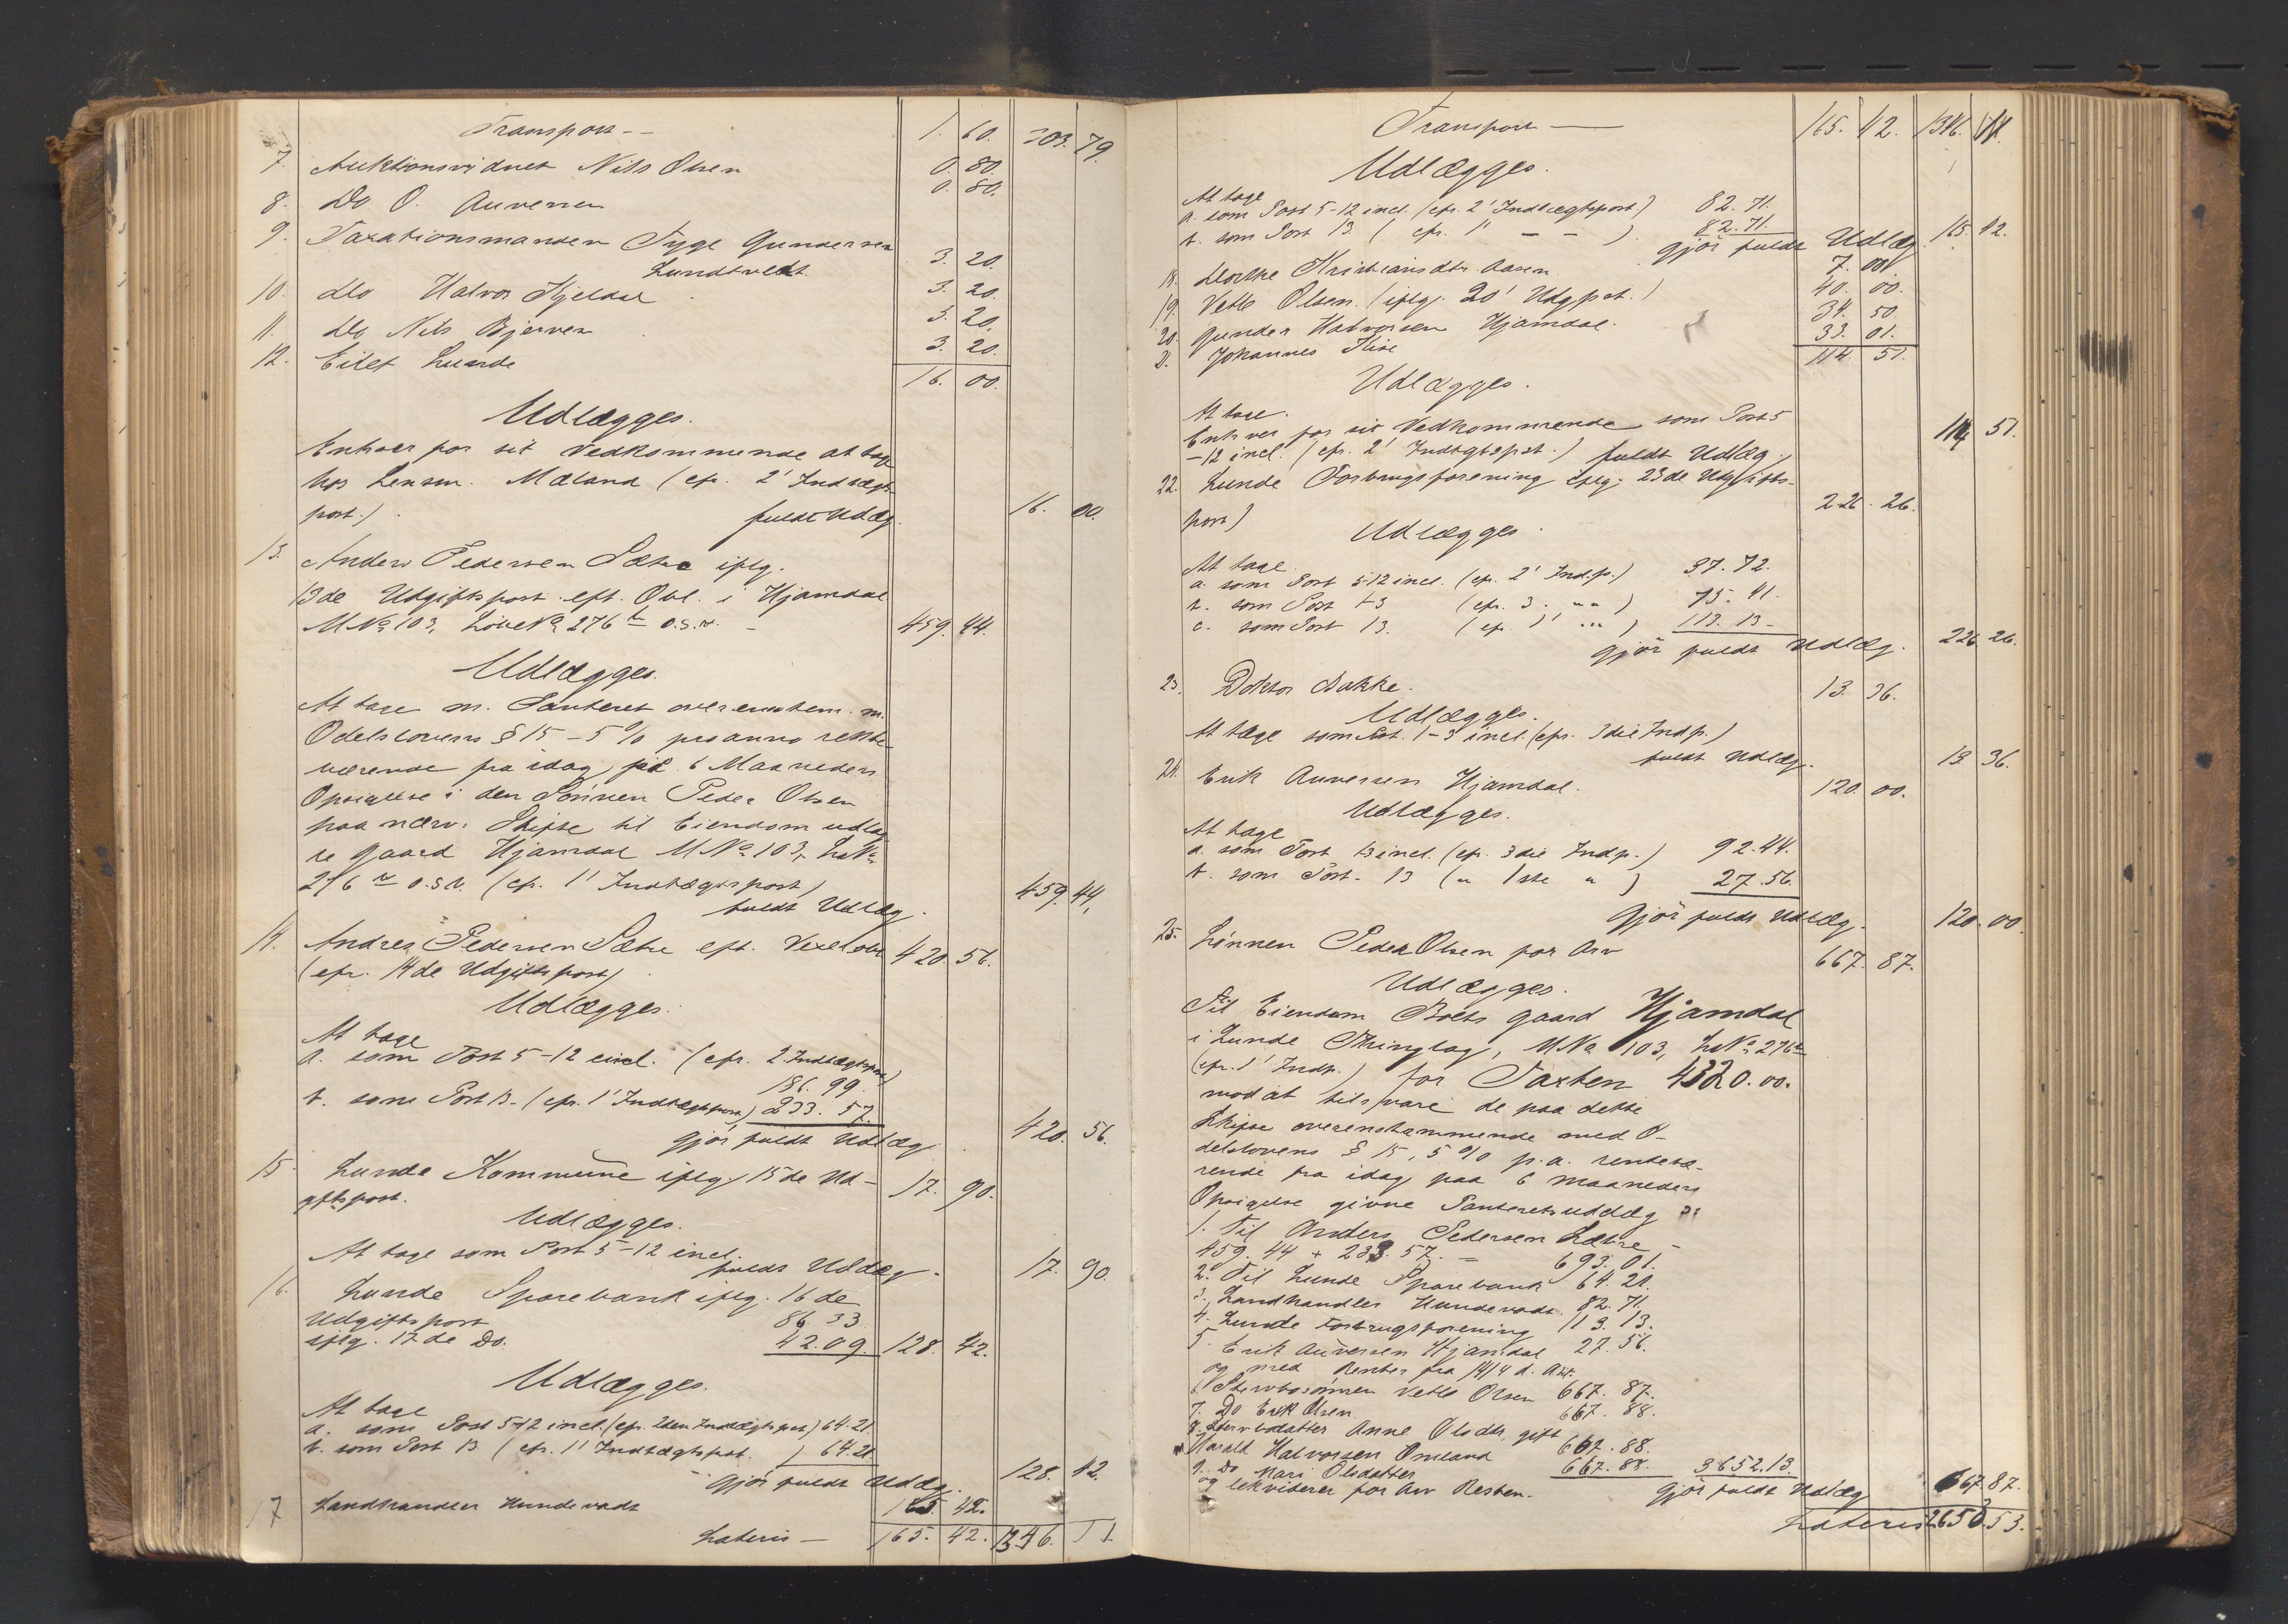 Transport -- 1. 60. 303. 79.
7. Auktionsvidnet Nils Olsen 0. 80.
8. Do O. Auversen 0. 80.
9. Taxationsmanden Tyge Gundersen
Lundtvedt 3. 20.
10. do Halvor Kjeldal 3. 20.
11. do Nils Bjerven 3. 20.
12. Eilef Lunde 3. 20.
16. 00.
Udlægges.
Enhver for sit Vedkommende at tage
hos Lensm. Mæland (cfr. 2' Indtægts-
post.) fuldt Udlæg. 16. 00.
13. Anders Pedersen Sætre iflg.
13de Udgiftspost eft. Obl. i Hjamdal
M No 103, Løbe No 276 o.s.v. - 459. 44.
Udlægges.
At tage m. Panteret overensstem. m.
Odelslovens § 15 - 5 % pro anno rente-
bærende fra idag, paa 6 Maaneders
Opsigelse i den Sønnen Peder Olsen
paa nærv. Skifte til Eiendom udlag-
te Gaard Hjamdal M No 103, LNo
276 o.s.v. (cfr. 1' Indtægtspost)
fuldt Udlæg. 459. 44.
14. Andres Pedersen Sætre eft. Vexelobl. 420. 56.
(cfr. 14de Udgiftspost)
Udlægges.
At tage
a. som Post 5-12 incl. (cfr. 2 Indtægtspost)
186. 99.
b. som Post 13 - (cfr. 1' Indtægtspost) 233. 57.
gjør fuldt Udlæg 420. 56.
15. Lunde Kommune iflg. 15de Ud- 17. 90.
gftspost.
Udlægges.
At tage som Post 5-12 incl.
fuldt Udlæg - 17. 90.
16. Lunde Sparebank iflg. 16de
Udgiftspost 86. 33
iflg. 17de Do. 42. 09. 128. 42.
Udlægges.
At tage
a. som Post 5-12 incl. (cfr. 2den Indtægtspost) 64. 21.
b. som Post 13 (cfr. 1' Indtægtspst. ) 64. 21.
gjør fuldt Udlæg. 128. 42.
17 Landhandler Hundevadt 165. 42.
Lateris — 165. 42. 1346. 11.
Transport — 165. 42. 1346. 11.
Udlægges.
At tage
a. som Post 5-12 incl. (cfr. 2' Indtægtspost) 82. 71.
b. som Post 13 ( cfr. 1' - - ) 82. 71.
gjør fuldt Udlæg 165. 42.
18. Dorthe Kristiansdtr. Aasen 7. 00.
19. Vetle Olsen (iflg. 20' Udgpst.) 40. 00.
20. Gunder Halvorsen Hjamdal. 34. 50.
21. Johannes Kise 33. 01.
114. 51.
Udlægges.
At tage.
Enhver for sit Vedkommende som Post 5
-12 incl. (cfr. 2' Indtgtspst.) fuldt Udlæg. 114. 51.
22. Lunde Forbrugsforening iflg. 23de Udgifts-
post) 226. 26.
Udlægges.
At tage
a. som Post 5-12 incl. (cfr. 2' Ind.p.) 37. 72.
b. som Post 1-3 (cfr. 3. „ „ ) 75. 41.
c. som Post 13. (cfr. 1' „ „ ) 113. 13 -
gjør fuldt Udlæg. 226. 26.
23. Doktor Bakke. 13. 36.
Udlægges.
At tage som Post. 1-3 incl. (cfr. 3die Indp.)
fuldt Udlæg. 13 36.
24. Erik Auversen Hjamdal. 120. 00.
Udlægges.
At tage
a. som Post 1-3 incl. (cfr. 3die Indp.) 92. 44.
b. som Post - 13 („ 1ste „ ) 27. 56.
gjør fuldt Udlæg. 120. 00.
25. Sønnen Peder Olsen for Arv 667. 87.
Udlægges.
Til Eiendom Boets Gaard Hjamdal
i Lunde Thinglag, M No 103, LNo 276
(cfr. 1' Indp.) for Taxten 4320. 00.
mod at tilsvare de paa dette
Skifte overensstemmende med O-
delslovens § 15, 5 % p.a. rentebæ-
rende fra idag paa 6 maaneders
Opsigelse givne Panteretsudlæg
1. Til Anders Pedersen Sætre -
459. 44 + 233. 57. = 693. 01.
2. Til Lunde Sparebank 64. 21.
3. Landhandler Hundevadt. 82. 71.
4. Lunde Forbrugsforening 113. 13.
5. Erik Auversen Hjamdal 27. 56.
og med Renter fra 14/4 d. A. til
6. Stervbosønnen Vetle Olsen 667. 87.
7. Do Erik Olsen 667. 88.
8. Stervbodatter Anne Olsdtr. gift
Harald Halvorsen Omland 667. 88.
9. Do Mari Olsdatter 667. 88. 3652. 13.
og lekviderer for Arv Resten. gjør fuldt Udlæg 667. 87.
Lateris 2653. 53.